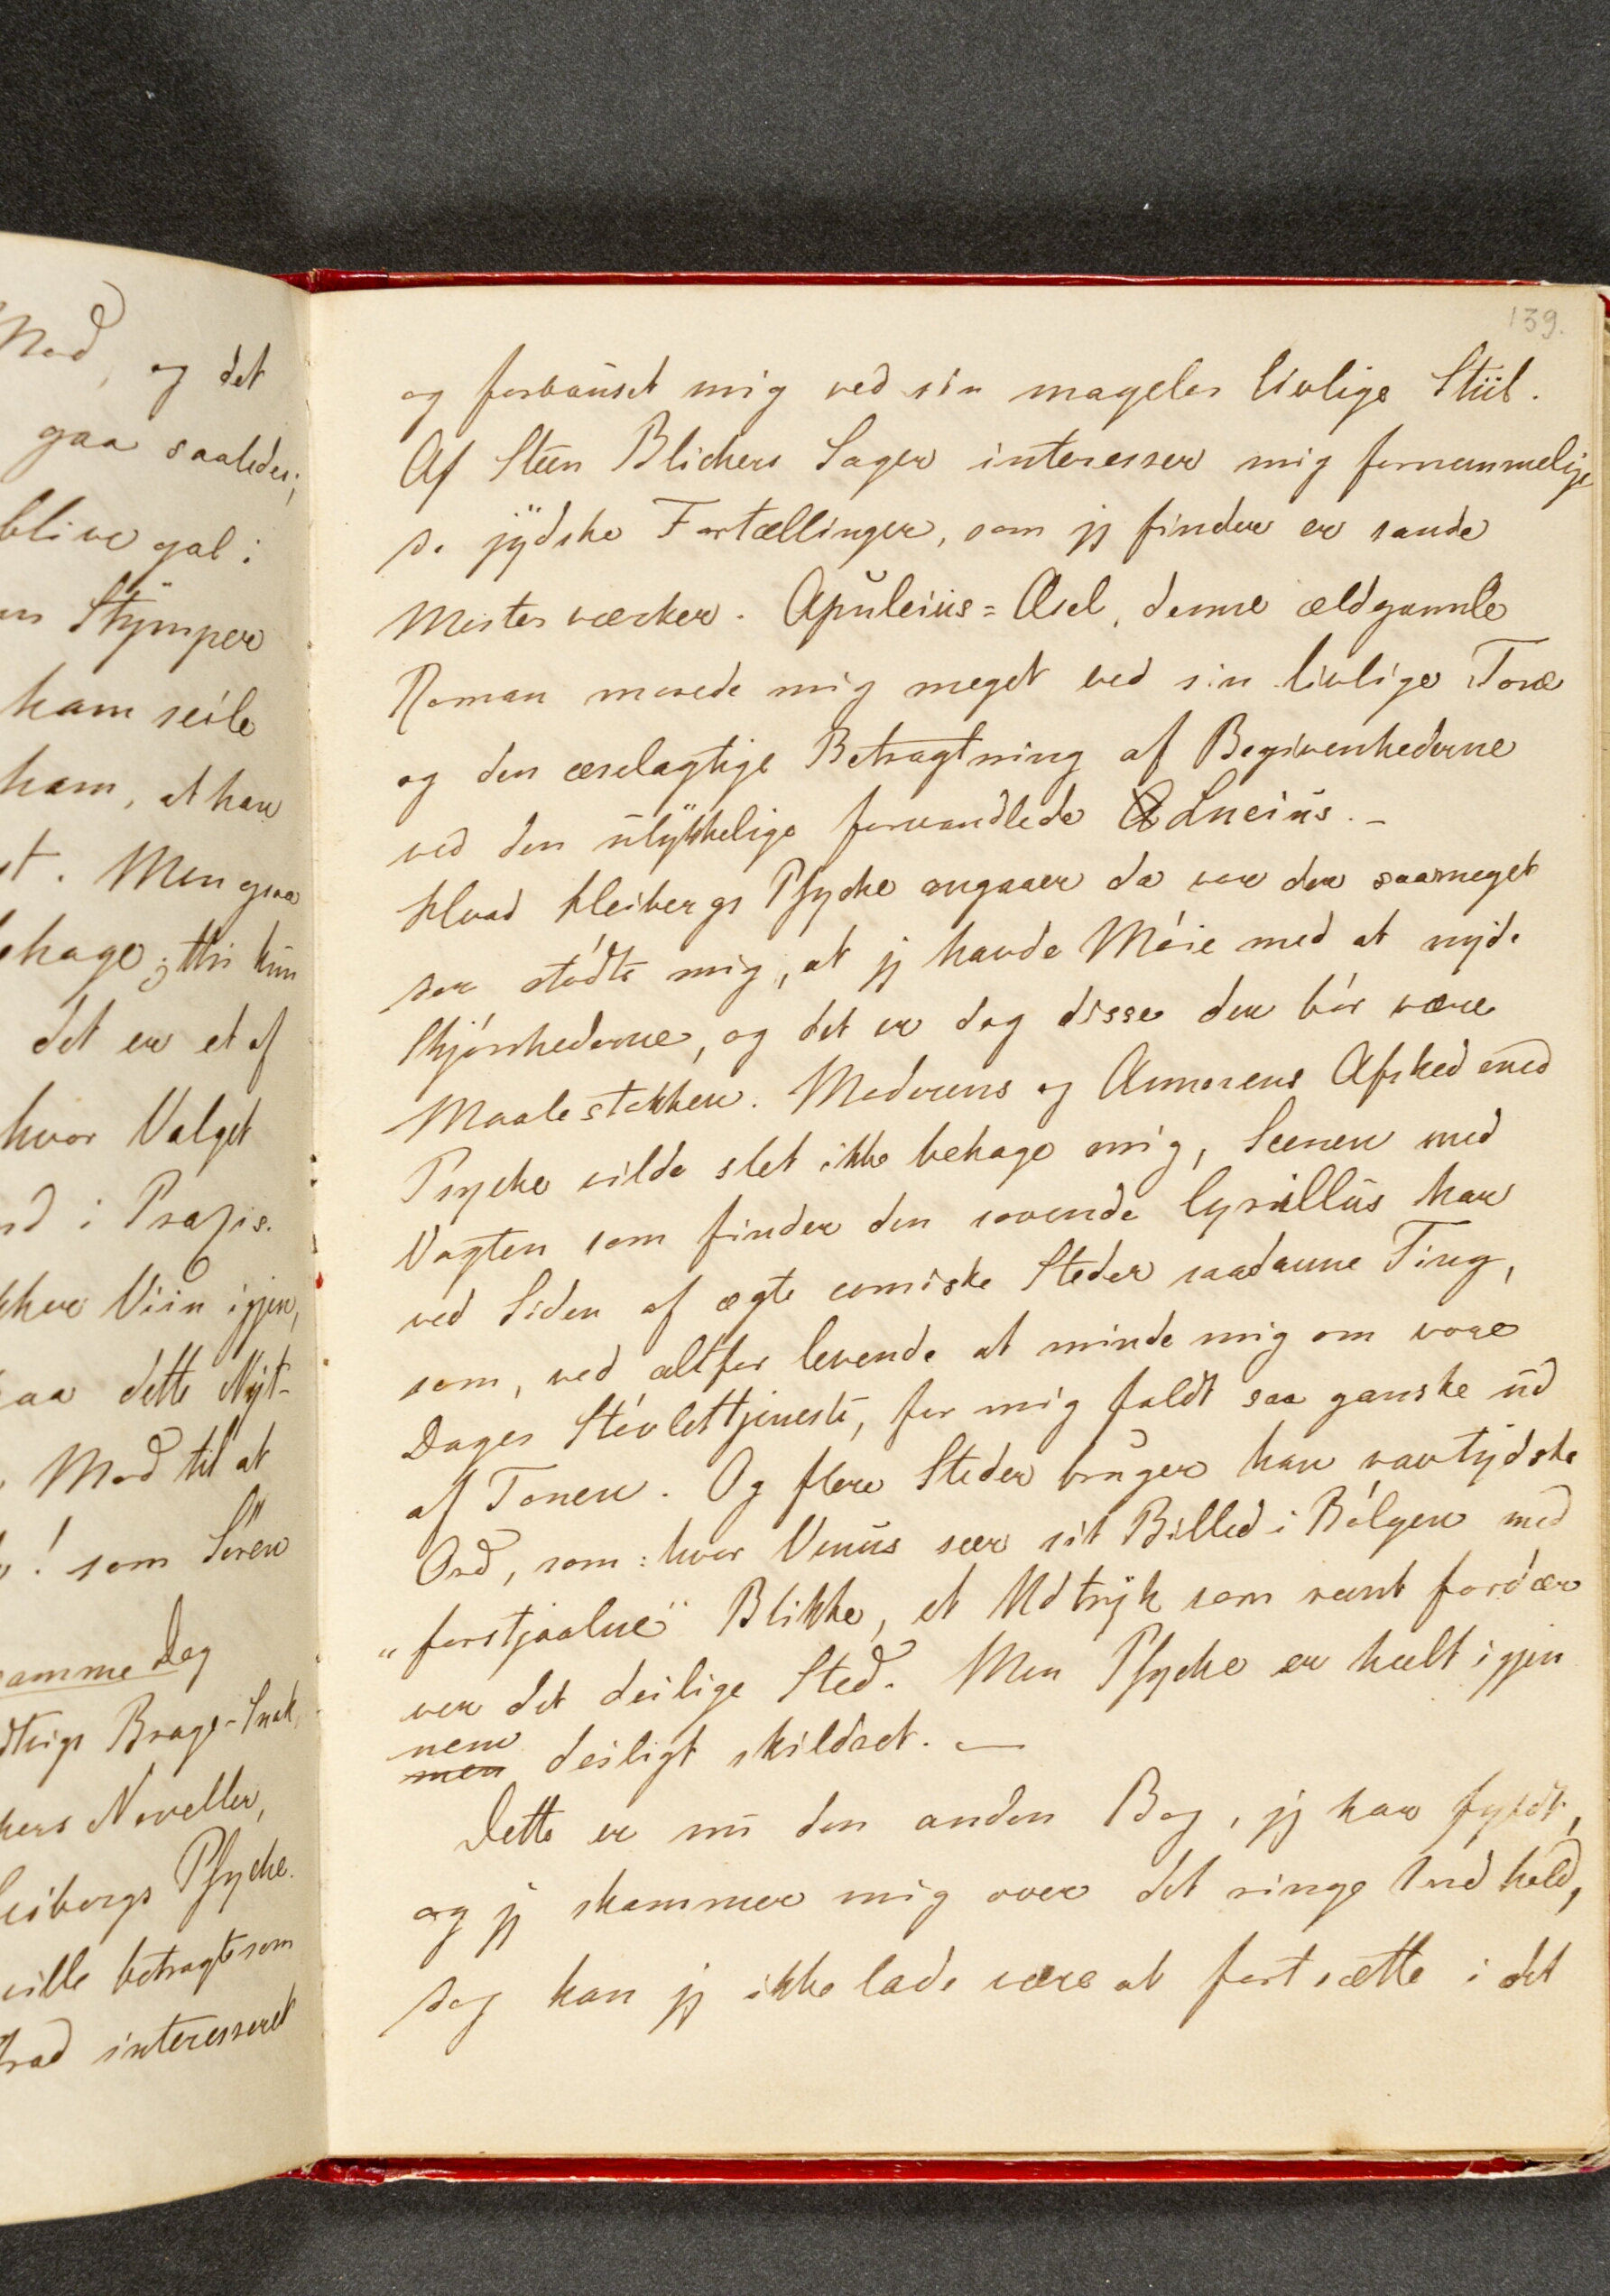 Mod, og det
gaa saaledes;
blive gal i
Stymper
ham seile
ham, at han
Men gaa
thi kun
det er et af
hvor Valget
i Praxis.
Viin igjen,
dette Nyt-
Mod til at
! som Søren
samme Dag
Brage-Snak,
Noveller,
Psyche.
ville betragte som
interesseret
139.
og forbauset mig ved sin mageløs livlige Stiil.
Af Steen Blichers Sager interesser mig fornemmelige
de jydske Fortællinger, som jeg finder er sande
Mesterværker. Apuleius=Æsel, denne ældgamle
Roman morede mig meget ved sin livlige Tone
og den æselagtige Betragtning af Begivenhederne
ved den ulykkelige forvandlede Lucius. –
Hvad Heibergs Psyche angaaer da var der saameget
der stødte mig, at jeg havde Møie med at nyde
Skjønhederne, og det er dog disse der bør være
Maalestokken. Moderens og Ammorens Afsked med
Psyche vilde slet ikke behage mig, Scenen med
Vagten som finder den sovende Cyrillus har
ved Siden af ægte comiske Steder saadanne Ting,
som, ved altfor levende at minde mig om vore
Dages Støvlettjeneste, for mig faldt saa ganske ud
af Tonen. Og flere Steder bruger han navtydske
Ord, som: hvor Venus seer sit Billed i Bølgen med
"forstjaalne" Blikke, et Udtryk som reent fordær
ver det deilige Sted. Men Psyche er heelt igjen
nem
men deiligt skildret. —
Dette er nu den anden Bog, jeg har fyldt,
og jeg skammer mig over det ringe Indhold,
dog kan jeg ikke lade være at fortsætte i det